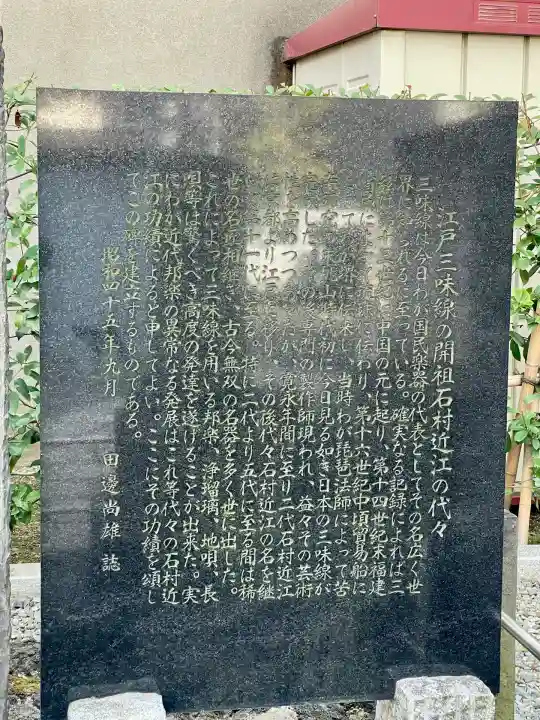 江戸三味線の開祖石村近江の代々
三味線は今日わが国民楽器の代表としてその名広く世
界に知られるに至っている。確実なる記録によれば三
絃は第十三世紀に中国の元に起り、第十四世紀末福建
によって琉球に伝わり、第十六世紀中頃貿易船に
よって に伝来し、当時わが琵琶法師によって苦
心 桃山時代初に今日見る如き日本の三味線が
完成した。その後専門の製作師現われ、益々その芸術
を高めつつ たが、寛永年間に至り二代石村近江
は京都より江戸に 、その後代々石村近江の名を継
十一代に至る。特に二代より五代に至る間は稀
世の名匠相継ぎ、古今無双の名器を多く世に出した。
これによって三味線を用いる邦楽、浄瑠璃、地唄、長
唄等は驚くべき高度の発達を遂げることが出来た。実
にわが近代邦楽の異常なる発展はこれ等代々の石村近
江の功績によると申してよい。ここにその功績を頌し
てこの碑を建立するものである。
昭和四十五年九月 田邊尚雄 誌